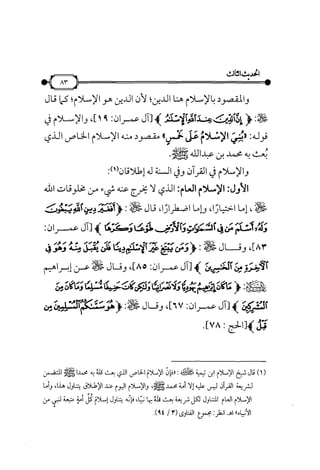 الحديث الثالث
٨٣
والمقصود بالإسلام هنا الدين؛ لأن الدين هو الإسلام؛ كما قال
ﷻ: ﴿إِنَّ الدِّينَ عِندَ اللَّهِ الْإِسْلَامُ﴾ [آل عمران: ١٩]، والإسلام في
قوله: «بُنِيَ الإِسْلَامُ عَلَى خَمْسٍ» مقصود منه الإسلام الخاص الذي
بُعث به محمد بن عبدالله ﷺ.
والإسلام في القرآن وفي السنة له إطلاقان(١):
الأول: الإسلام العام: الذي لا يخرج عنه شيء من مخلوقات الله
ﷻ، إما اختيارًا، وإما اضطرارًا، قال ﷻ: ﴿أَفَغَيْرَ دِينِ اللَّهِ يَبْغُونَ
وَلَهُ أَسْلَمَ مَن فِي السَّمَاوَاتِ وَالْأَرْضِ طَوْعًا وَكَرْهًا﴾ [آل عمران:
٨٣]، وقال ﷻ: ﴿وَمَن يَبْتَغِ غَيْرَ الْإِسْلَامِ دِينًا فَلَن يُقْبَلَ مِنْهُ وَهُوَ فِي
الْآخِرَةِ مِنَ الْخَاسِرِينَ﴾ [آل عمران: ٨٥]، وقال ﷻ عن إبراهيم
: ﴿مَا كَانَ إِبْرَاهِيمُ يَهُودِيًّا وَلَا نَصْرَانِيًّا وَلَٰكِن كَانَ حَنِيفًا مُّسْلِمًا وَمَا كَانَ مِنَ
الْمُشْرِكِينَ﴾ [آل عمران: ٦٧]، وقال ﷻ: ﴿هُوَ سَمَّاكُمُ الْمُسْلِمِينَ مِن
قَبْلُ﴾ [الحج: ٧٨].
(١) قال شيخ الإسلام ابن تيمية: «فإنَّ الإسلام الخاص الذي بعث الله به محمدا ﷺ المتضمن
لشريعة القرآن ليس عليه إلا أمة محمد ﷺ، والإسلام اليوم عند الإطلاق يتناول هذا، وأما
الإسلام العام المتناول لكل شريعة بعث الله بها نبيًا، فإنّه يتناول إسلام كُلّ أمةٍ متبعة لنبي من
الأنبياء» اهـ. انظر: مجموع الفتاوى (٣/ ٩٤).